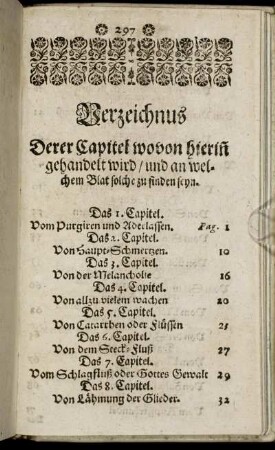 297
Verzeichnus
Derer Capitel wovon hierin̄
gehandelt wird / und an wel-
chem Blat solche zu finden seyn.
Das 1. Capitel.
Vom Purgiren und Aderlassen. Pag. 1
Das 2. Capitel.
Von Haupt-Schmertzen. 10
Das 3. Capitel.
Von der Melancholie 16
Das 4. Capitel.
Von allzu vielem wachen 20
Das 5. Capitel.
Von Catarrhen oder Flüssen 21
Das 6. Capitel.
Von dem Steck-Fluß 27
Das 7. Capitel.
Vom Schlagfluß oder Gottes Gewalt 29
Das 8. Capitel.
Von Lähmung der Glieder. 32